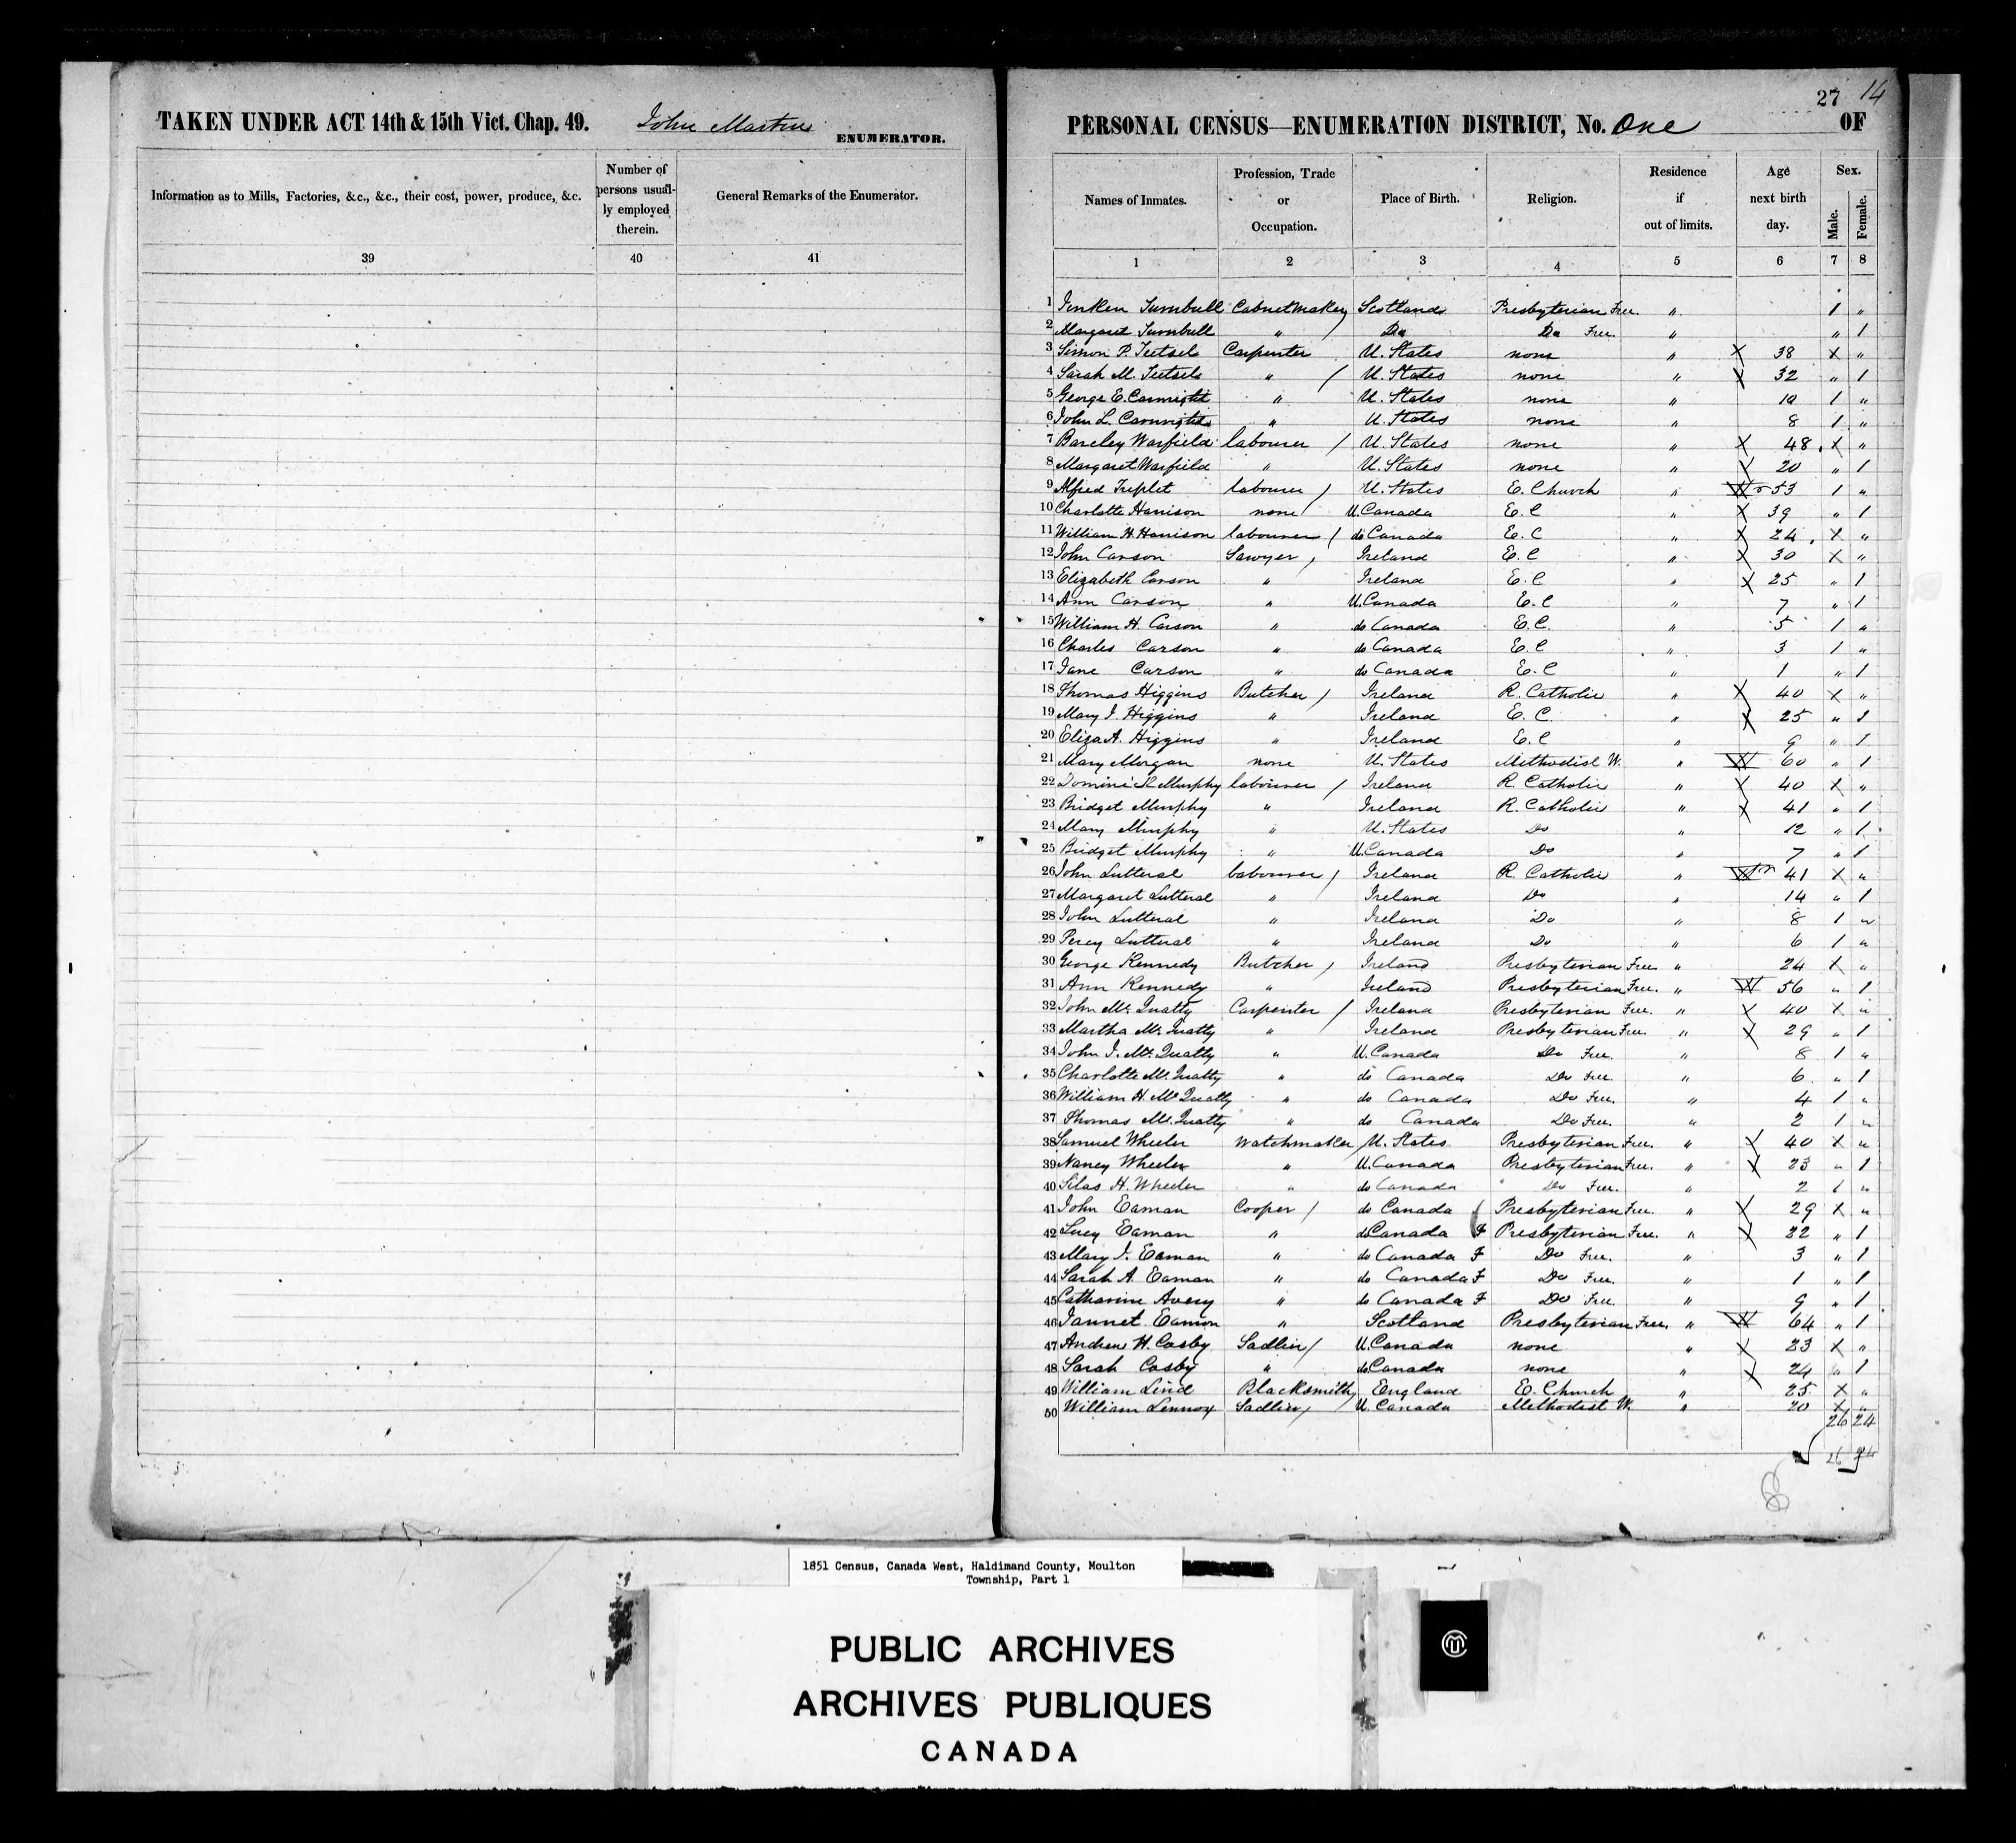 TAKEN UNDER ACT 14th & 15th Vict. Chap. 49. John Martin ENUMERATOR.
Information as to Mills, Factories, &c., &c., their cost, power, produce, &c.
Number of persons usual-ly employed therein.
General Remarks of the Enumerator.
39 40 41
27 14
PERSONAL CENSUS—ENUMERATION DISTRICT, No. One OF
Names of Inmates. Profession, Trade or Occupation. Place of Birth. Religion. Residence if out of limits. Age next birth day. Sex. Male. Female.
1 2 3 4 5 6 7 8
1 Turnbull Cabnetmaker / Scotland Presbyterian Free. " 1 "
2 Margaret Turnbull " Do Do Free. " " 1
3 Simon P. Teetsel Carpenter U. States none " X 38 X "
4 Sarah M. Teetsel " / U. States none " X 32 " 1
5 George E. " U. States none " 10 1 "
6 John L. " U. States none " 8 1 "
7 Barcley Warfield labourer / U. States none " X 48 X "
8 Margaret Warfield " U. States none " X 20 " 1
9 Alfred Triplet labourer / U. States E. Church " W 53 1 "
10 Charlotte Harrison none / U. Canada E. C " X 39 " 1
11 William H Harrison labourer / do Canada E. C " X 24 X "
12 John Carson Sawyer / Ireland E. C " X 30 X "
13 Elizabeth Carson " Ireland E. C " X 25 " 1
14 Ann Carson " U. Canada E. C " 7 " 1
15 William H. Carson " do Canada E. C. " 5 1 "
16 Charles Carson " do Canada E. C " 3 1 "
17 Jane Carson " do Canada E. C " 1 " 1
18 Thomas Higgins Butcher / Ireland R. Catholic " X 40 X "
19 Mary J. Higgins " Ireland E. C. " X 25 " 1
20 Eliza A. Higgins " Ireland E. C " 9 " 1
21 Mary Morgan none U. States Methodist W. " W 60 " 1
22 Dominick Murphy labourer / Ireland R. Catholic " X 40 X "
23 Bridget Murphy " Ireland R. Catholic " X 41 " 1
24 Mary Murphy " U. States Do " 12 " 1
25 Bridget Murphy " U. Canada Do " 7 " 1
26 John Lutteral labourer / Ireland R. Catholic " W 41 X "
27 Margaret Lutteral " Ireland Do " 14 " 1
28 John Lutteral " Ireland Do " 8 1 "
29 Percy Lutteral " Ireland Do " 6 1 "
30 George Kennedy Butcher / Ireland Presbyterian Free. " 24 X "
31 Ann Kennedy " Ireland Presbyterian Free. " W 56 " 1
32 John Mc Quatty Carpenter / Ireland Presbyterian Free. " X 40 X "
33 Martha Mc Quatty " Ireland Presbyterian Free. " X 29 " 1
34 John J. Mc Quatty " U. Canada Do Free. " 8 1 "
35 Charlotte Mc Quatty " do Canada Do Free. " 6 " 1
36 William H. Mc Quatty " do Canada Do Free. " 4 1 "
37 Thomas Mc Quatty " do Canada Do Free. " 2 1 "
38 Samuel Wheeler Watchmaker / U. States Presbyterian Free. " X 40 X "
39 Nancy Wheeler " U. Canada Presbyterian Free. " X 23 " 1
40 Silas H. Wheeler " do Canada Do Free. " 2 1 "
41 John Eaman Cooper / do Canada Presbyterian Free. " X 29 X "
42 Lucy Eaman " do Canada F Presbyterian Free. " X 22 " 1
43 Mary J. Eaman " do Canada F Do Free. " 3 " 1
44 Sarah A. Eaman " do Canada F Do Free. " 1 " 1
45 Catharine Avery " do Canada F Do Free. " 9 " 1
46 Jannet Eamon " Scotland Presbyterian Free. " W 64 " 1
47 Andrew H. Cosby Sadler / U. Canada none " X 23 X "
48 Sarah Cosby " do Canada none " X 24 " 1
49 William Lind Blacksmith / England E. Church " 25 X "
50 William Lennox Sadler / U. Canada Methodist W. " 20 X "
26 24
26 24
1851 Census, Canada West, Haldimand County, Moulton
Township, Part 1
PUBLIC ARCHIVES
ARCHIVES PUBLIQUES
CANADA